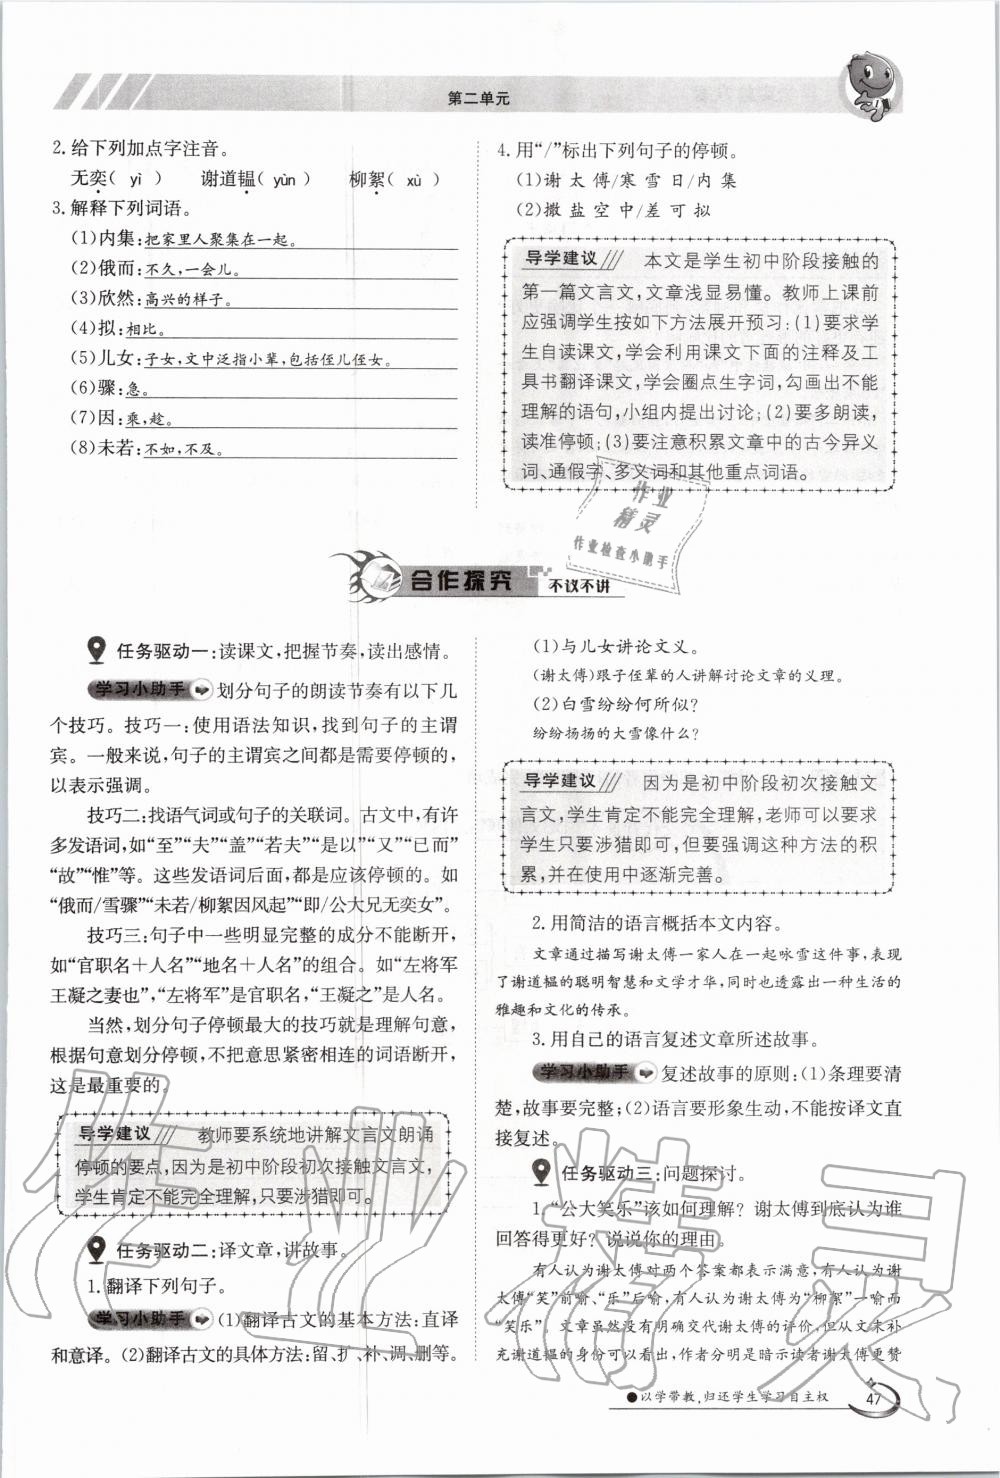 第二单元
2.给下列加点字注音。
无奕( yì )  谢道韫( yùn )  柳絮( xù )
3.解释下列词语。
(1)内集:把家里人聚集在一起。
(2)俄而:不久,一会儿。
(3)欣然:高兴的样子。
(4)拟:相比。
(5)儿女:子女,文中泛指小辈,包括侄儿侄女。
(6)骤:急。
(7)因:乘,趁。
(8)未若:不如,不及。
4.用“/”标出下列句子的停顿。
(1)谢太傅/寒雪日/内集
(2)撒盐空中/差可拟
导学建议 本文是学生初中阶段接触的
第一篇文言文,文章浅显易懂。教师上课前
应强调学生按如下方法展开预习:(1)要求学
生自读课文,学会利用课文下面的注释及工
具书翻译课文,学会圈点生字词,勾画出不能
理解的语句,小组内提出讨论;(2)要多朗读,
读准停顿;(3)要注意积累文章中的古今异义
词、通假字、多义词和其他重点词语。
作业
精灵
作业检查小助手
合作探究 不议不讲
任务驱动一:读课文,把握节奏,读出感情。
学习小助手 划分句子的朗读节奏有以下几
个技巧。技巧一:使用语法知识,找到句子的主谓
宾。一般来说,句子的主谓宾之间都是需要停顿的,
以表示强调。
技巧二:找语气词或句子的关联词。古文中,有许
多发语词,如“至”“夫”“盖”“若夫”“是以”“又”“已而”
“故”“惟”等。这些发语词后面,都是应该停顿的。如
“俄而/雪骤”“未若/柳絮因风起”“即/公大兄无奕女”。
技巧三:句子中一些明显完整的成分不能断开,
如“官职名+人名”“地名+人名”的组合。如“左将军
王凝之妻也”,“左将军”是官职名,“王凝之”是人名。
当然,划分句子停顿最大的技巧就是理解句意,
根据句意划分停顿,不把意思紧密相连的词语断开,
这是最重要的。
导学建议 教师要系统地讲解文言文朗诵
停顿的要点,因为是初中阶段初次接触文言文,
学生肯定不能完全理解,只要涉猎即可。
任务驱动二:译文章,讲故事。
1.翻译下列句子。
学习小助手 (1)翻译古文的基本方法:直译
和意译。(2)翻译古文的具体方法:留、扩、补、调、删等。
(1)与儿女讲论文义。
(谢太傅)跟子侄辈的人讲解讨论文章的义理。
(2)白雪纷纷何所似?
纷纷扬扬的大雪像什么?
导学建议 因为是初中阶段初次接触文
言文,学生肯定不能完全理解,老师可以要求
学生只要涉猎即可,但要强调这种方法的积
累,并在使用中逐渐完善。
2.用简洁的语言概括本文内容。
文章通过描写谢太傅一家人在一起咏雪这件事,表现
了谢道韫的聪明智慧和文学才华,同时也透露出一种生活的
雅趣和文化的传承。
3.用自己的语言复述文章所述故事。
学习小助手 复述故事的原则:(1)条理要清
楚,故事要完整;(2)语言要形象生动,不能按译文直
接复述。
任务驱动三:问题探讨。
1.“公大笑乐”该如何理解?谢太傅到底认为谁
回答得更好?说说你的理由。
有人认为谢太傅对两个答案都表示满意,有人认为谢
太傅“笑”前喻、“乐”后喻,有人认为谢太傅为“柳絮”一喻而
“笑乐”。文章虽然没有明确交代谢太傅的评价,但从文末补
充谢道韫的身份可以看出,作者分明是暗示读者谢太傅更赞
●以学带教,归还学生学习自主权 47
作业精灵